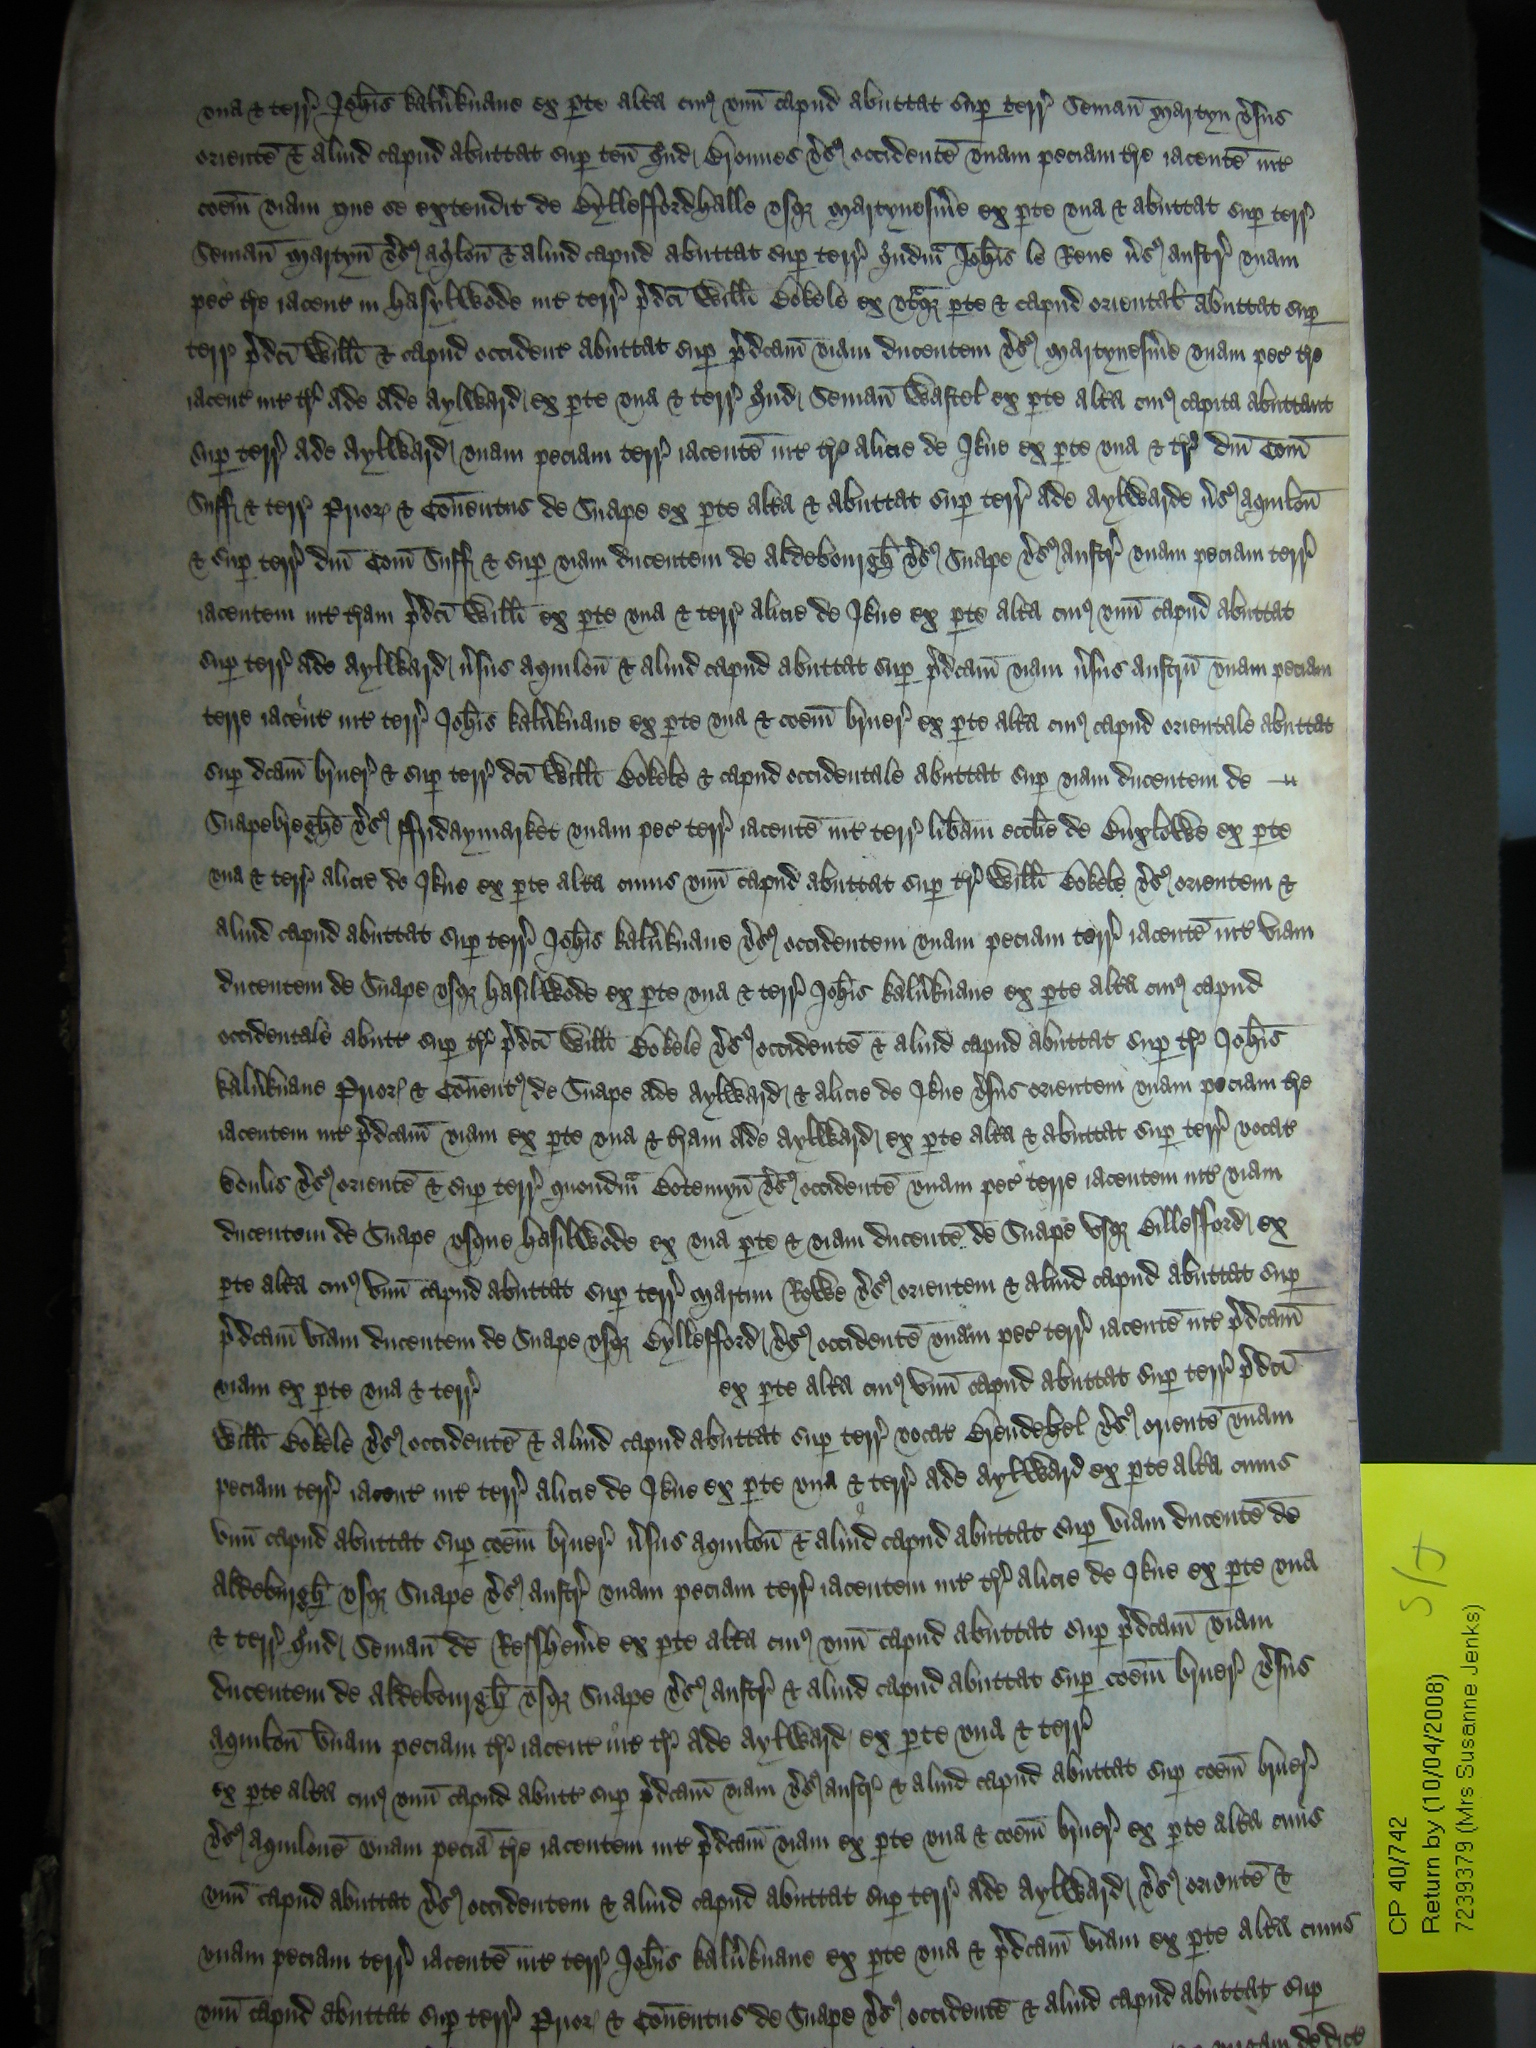 vna & terr Johis kalu'knaue ex pte alta cui9 vnu capud abuttat sup terr Seman Martyn v'sus
oriente & aliud capud abuttat sup ten qnd Bronnes v's9 occidente vnam peciam tre iacente int
coem viam que se extendit de Bylleffordhalle vsq martynesm'e ex pte vna & abuttat sup terr
Seman Martyn v's9 aqilon & aliud capud abuttat sup terr qndm Johis le Reue v's9 austr vnam
pec tre iacent in hasylwode int terr p'dci Willi Bokele ex vtaq pte & capud oriental abuttat sup
terr p'dci Willi & capud occident abuttat sup p'dcam viam ducentem v's9 martynesm'e vnam pec tre
iacent int tr ade ade aylward ex pte vna & terr qnd Seman Wastel ex pte alta cui9 capita abuttant
sup terr ade aylward vnam peciam terr iacente int tre alicie de Jkne ex pte vna & tr dni Com
Suff & terr Prior & Conuentus de Snape ex pte alta & abuttat sup terr ade aylwarde v's9 aquilon
& sup terr dni Com Suff & sup viam ducentem de aldebourgh v's9 Snape v's9 austr vnam peciam terr
iacentem int tram p'dci Willi ex pte vna & terr alicie de Jkne ex pte alta cui9 vnu capud abuttat
sup terr ade aylward v'sus aquilon & aliud capud abuttat sup p'dcam viam v'sus austru vnam peciam
terre iacent int terr Johis kalu'knaue ex pte vna & coem bruer ex pte alta cui9 capud orientale abuttat
sup dcam bruer & sup terr dci Willi Bokele & capud occidentale abuttat sup viam ducentem de
Snapebreghe v's9 ffridaymarket vnam pec terr iacente int terr libam ecclie de Buxlowe ex pte
vna & terr alicie de Jkne ex pte alta cuius vnu capud abuttat sup tr Willi Bokele v's9 orientem &
aliud capud abuttat sup terr Johis kalu'knaue v's9 occidentem vnam peciam terr iacente int viam
ducentem de Snape vsq hasilwode ex pte vna & terr Johis kalu'knaue ex pte alta cui9 capud
occidentale abutt sup tr p'dci Willi Bokele v's9 occidente & aliud capud abuttat sup tr Johis
kalu'knaue Prior & Conuent9 de Snape ade aylward & alicie de Jkne v'sus orientem vnam peciam tre
iacentem int p'dcam viam ex pte vna & tram ade aylward ex pte alta & abuttat sup terr vocat
v's9 oriente & sup terr quondm Botemyn v's9 occidente vnam pec terre iacentem int viam
ducentem de Snape vsque hasilwode ex vna pte & viam ducente de Snape vsq Billefford ex
pte alta cui9 vnu capud abuttat sup terr martini Rowe v's9 orientem & aliud capud abuttat sup
p'dcam viam ducentem de Snape vsq Byllefford v's9 occidente vnam pec terr iacente int p'dcam
viam ex pte vna & terr ex pte alta cui9 vnu capud abuttat sup terr p'dci
Willi Bokele v's9 occidente & aliud capud abuttat sup terr vocat v's9 oriente vnam
peciam terr iacent int terr alicie de Jkne ex pte vna & terr ade aylward ex pte alta cuius
vnu capud abuttat sup coem bruer v'sus aquilon & aliud capud abuttat sup viam ducente de
aldeburgh vsq Snape v's9 austr vnam peciam terr iacentem int tr alicie de Jkne ex pte vna
& terr qnd Seman de ex pte alta cui9 vnu capud abuttat sup p'dcam viam
ducentem de aldebourgh vsq Snape v's9 austr & aliud capud abuttat sup coem bruer v'sus
aquilon vnam peciam tr iacent int tr ade aylward ex pte vna & terr
ex pte alta cui9 vnu capud abutt sup p'dcam viam v's9 austr & aliud capud abuttat sup coem bruer
v's9 aquilone vnam pecia tre iacentem int p'dcam viam ex pte vna & coem bruer ex pte alta cuius
vnu capud abuttat v's9 occidentem & aliud capud abuttat sup terr ade aylward v's9 oriente &
vnam peciam terr iacente int terr Johis kalu'knaue ex pte vna & p'dcam viam ex pte alta cuius
vnu capud abuttat sup terr Prior & Conuentus de Snape v's9 occidente & aliud capud abuttat sup
S/J
CP 40/742
Return by (10/04/2008)
7239379 (Mrs Susanne Jenks)